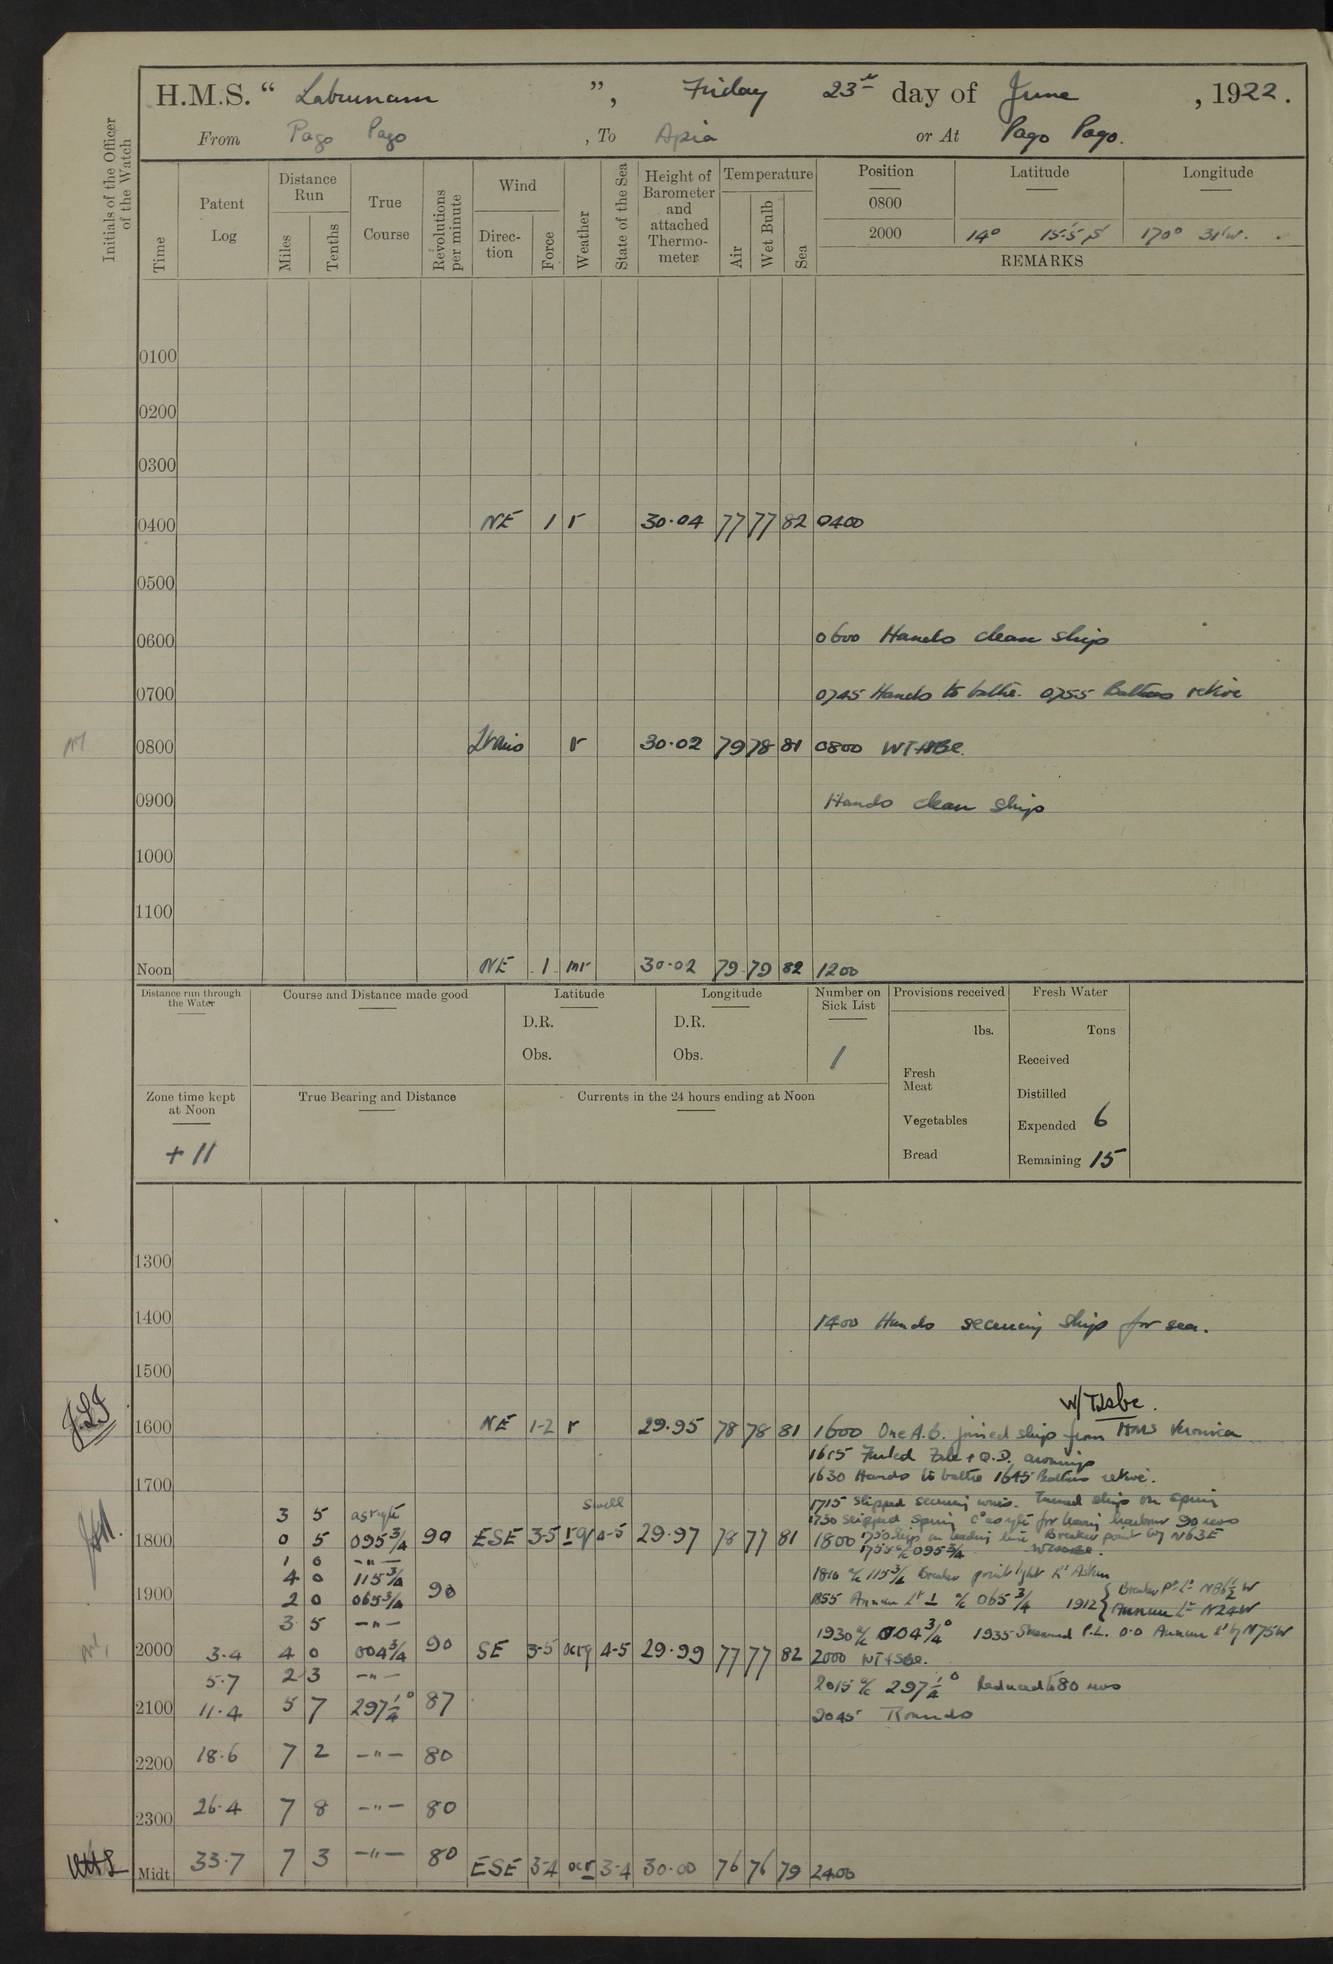 H.M.S. “ Laburnam ”, Friday 23rd day of June , 1922.
From Pago Pago , To Apia or At Pago Pago.
Initials of the Officer of the Watch
Time
Patent Log
Distance Run
Miles
Tenths
True Course
Revolutions per minute
Wind
Direction
Force
Weather
State of the Sea
Height of Barometer and attached Thermometer
Temperature
Air
Wet Bulb
Sea
Position
0800
2000
Latitude
14° 15.5 S
Longitude
170° 31' W.
REMARKS
0100
0200
0300
0400 NE 1 r 30.04 77 77 82 0400
0500
0600 0600 Hands clean ship
0700 0745 Hands to bathe. 0755 Bathers retire
0800 Ltairs r 30.02 79 78 81 0800 WT+SBe.
0900 Hands clean ship
1000
1100
Noon NE 1 mr 30.02 79 79 82 1200
Distance run through the Water
Course and Distance made good
Latitude
D.R.
Obs.
Longitude
D.R.
Obs.
Number on Sick List
1
Provisions received
lbs.
Fresh Meat
Vegetables
Bread
Fresh Water
Tons
Received
Distilled
Expended 6
Remaining 15
Zone time kept at Noon
+ 11
True Bearing and Distance
Currents in the 24 hours ending at Noon
1300
1400 1400 Hands securing ship for sea.
1500
WTSbe.
1600 NE 1-2 r 29.95 78 78 81 1600 One A.B. joined ship from HMS Veronica
1615 Furled Fxle + Q.D. awnings
1630 Hands to bathe 1645 Bathers retire.
1700
1715 Slipped securing wires. Turned ship on spring
3 5 asreqte swell 1730 Slipped spring Co asreqte for leaving harbour 90 revs
1800 0 5 095 3/4 90 ESE 3-5 rq 4-5 29.97 78 77 81 1800 1750 Ship on leading line Breaker point brg N63E
1 0 -"- 1755 a/c 095 3/4
4 0 115 3/4 1810 a/c 115 3/4 Breaker point light Lt Astern
1900 2 0 065 3/4 90 1855 Aunuu Lt ⊥ a/c 065 3/4 1912 { Breaker Pt Lt N86 1/2 W
Aunuu Lt N24W
3 5 -"- 1930 a/c 004 3/4° 1935 Streamed P.L. 0.0 Aunuu Lt brg N75W
2000 3.4 4 0 004 3/4 90 SE 3-5 ocrq 4-5 29.99 77 77 82 2000 WT+SBe.
5.7 2 3 -"- 2015 a/c 297 1/4° Reduced to 80 revs
2100 11.4 5 7 297 1/4° 87 2045 Rounds
2200 18.6 7 2 -"- 80
2300 26.4 7 8 -"- 80
Midt 33.7 7 3 -"- 80 ESE 3-4 ocr 3-4 30.00 76 76 79 2400